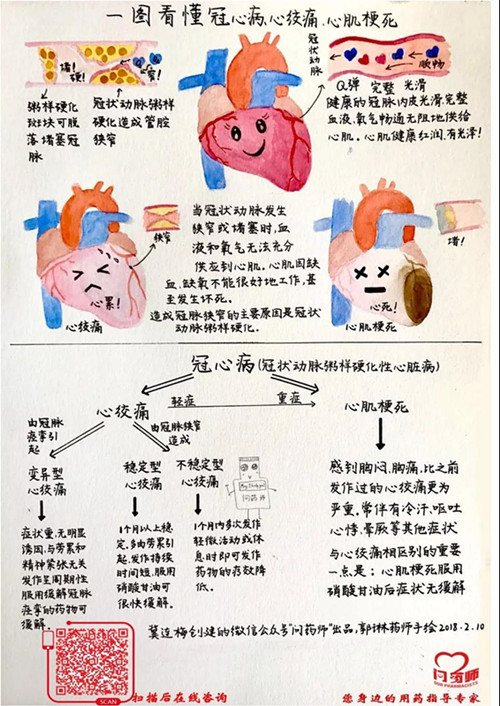 一图看懂冠心病、心绞痛、心肌梗死
堵!
硬!
窄!
冠状动脉
顺畅
粥样硬化
斑块可脱
落堵塞冠
脉
冠状动脉粥样
硬化造成管腔
狭窄
Q弹 完整 光滑
健康的冠脉内皮光滑、完整
血液、氧气畅通无阻地供给
心肌。心肌健康红润、有光泽!
当冠状动脉发生
狭窄或堵塞时,血
液和氧气无法充分
供应到心肌。心肌因缺
血、缺氧不能很好地工作,甚
至发生坏死。
造成冠脉狭窄的主要原因是冠状
动脉粥样硬化。
狭窄
心累!
心绞痛
堵!
心死!
心肌梗死
冠心病(冠状动脉粥样硬化性心脏病)
心绞痛
轻症 重症
心肌梗死
由冠脉
痉挛引
起
由冠脉狭窄
造成
变异型
心绞痛
稳定型
心绞痛
不稳定型
心绞痛
问药师
症状重,无明显
诱因,与劳累和
精神紧张无关
发作呈周期性
服用缓解冠脉
痉挛的药物可
缓解。
1个月以上稳
定,多由劳累引
起,发作持续
时间短,服用
硝酸甘油可
很快缓解。
1个月内多次发作
轻微活动或休
息时即可发作
药物的疗效降
低。
感到胸闷、胸痛,比之前
发作过的心绞痛更为
严重。常伴有冷汗、呕吐
心悸、晕厥等其他症状
与心绞痛相区别的重要
一点是:心肌梗死服用
硝酸甘油后症状无缓解
冀连梅创建的微信公众号"问药师"出品,郭琳药师手绘 2018.2.10
SCAN
扫描后在线咨询
问药师
您身边的用药指导专家